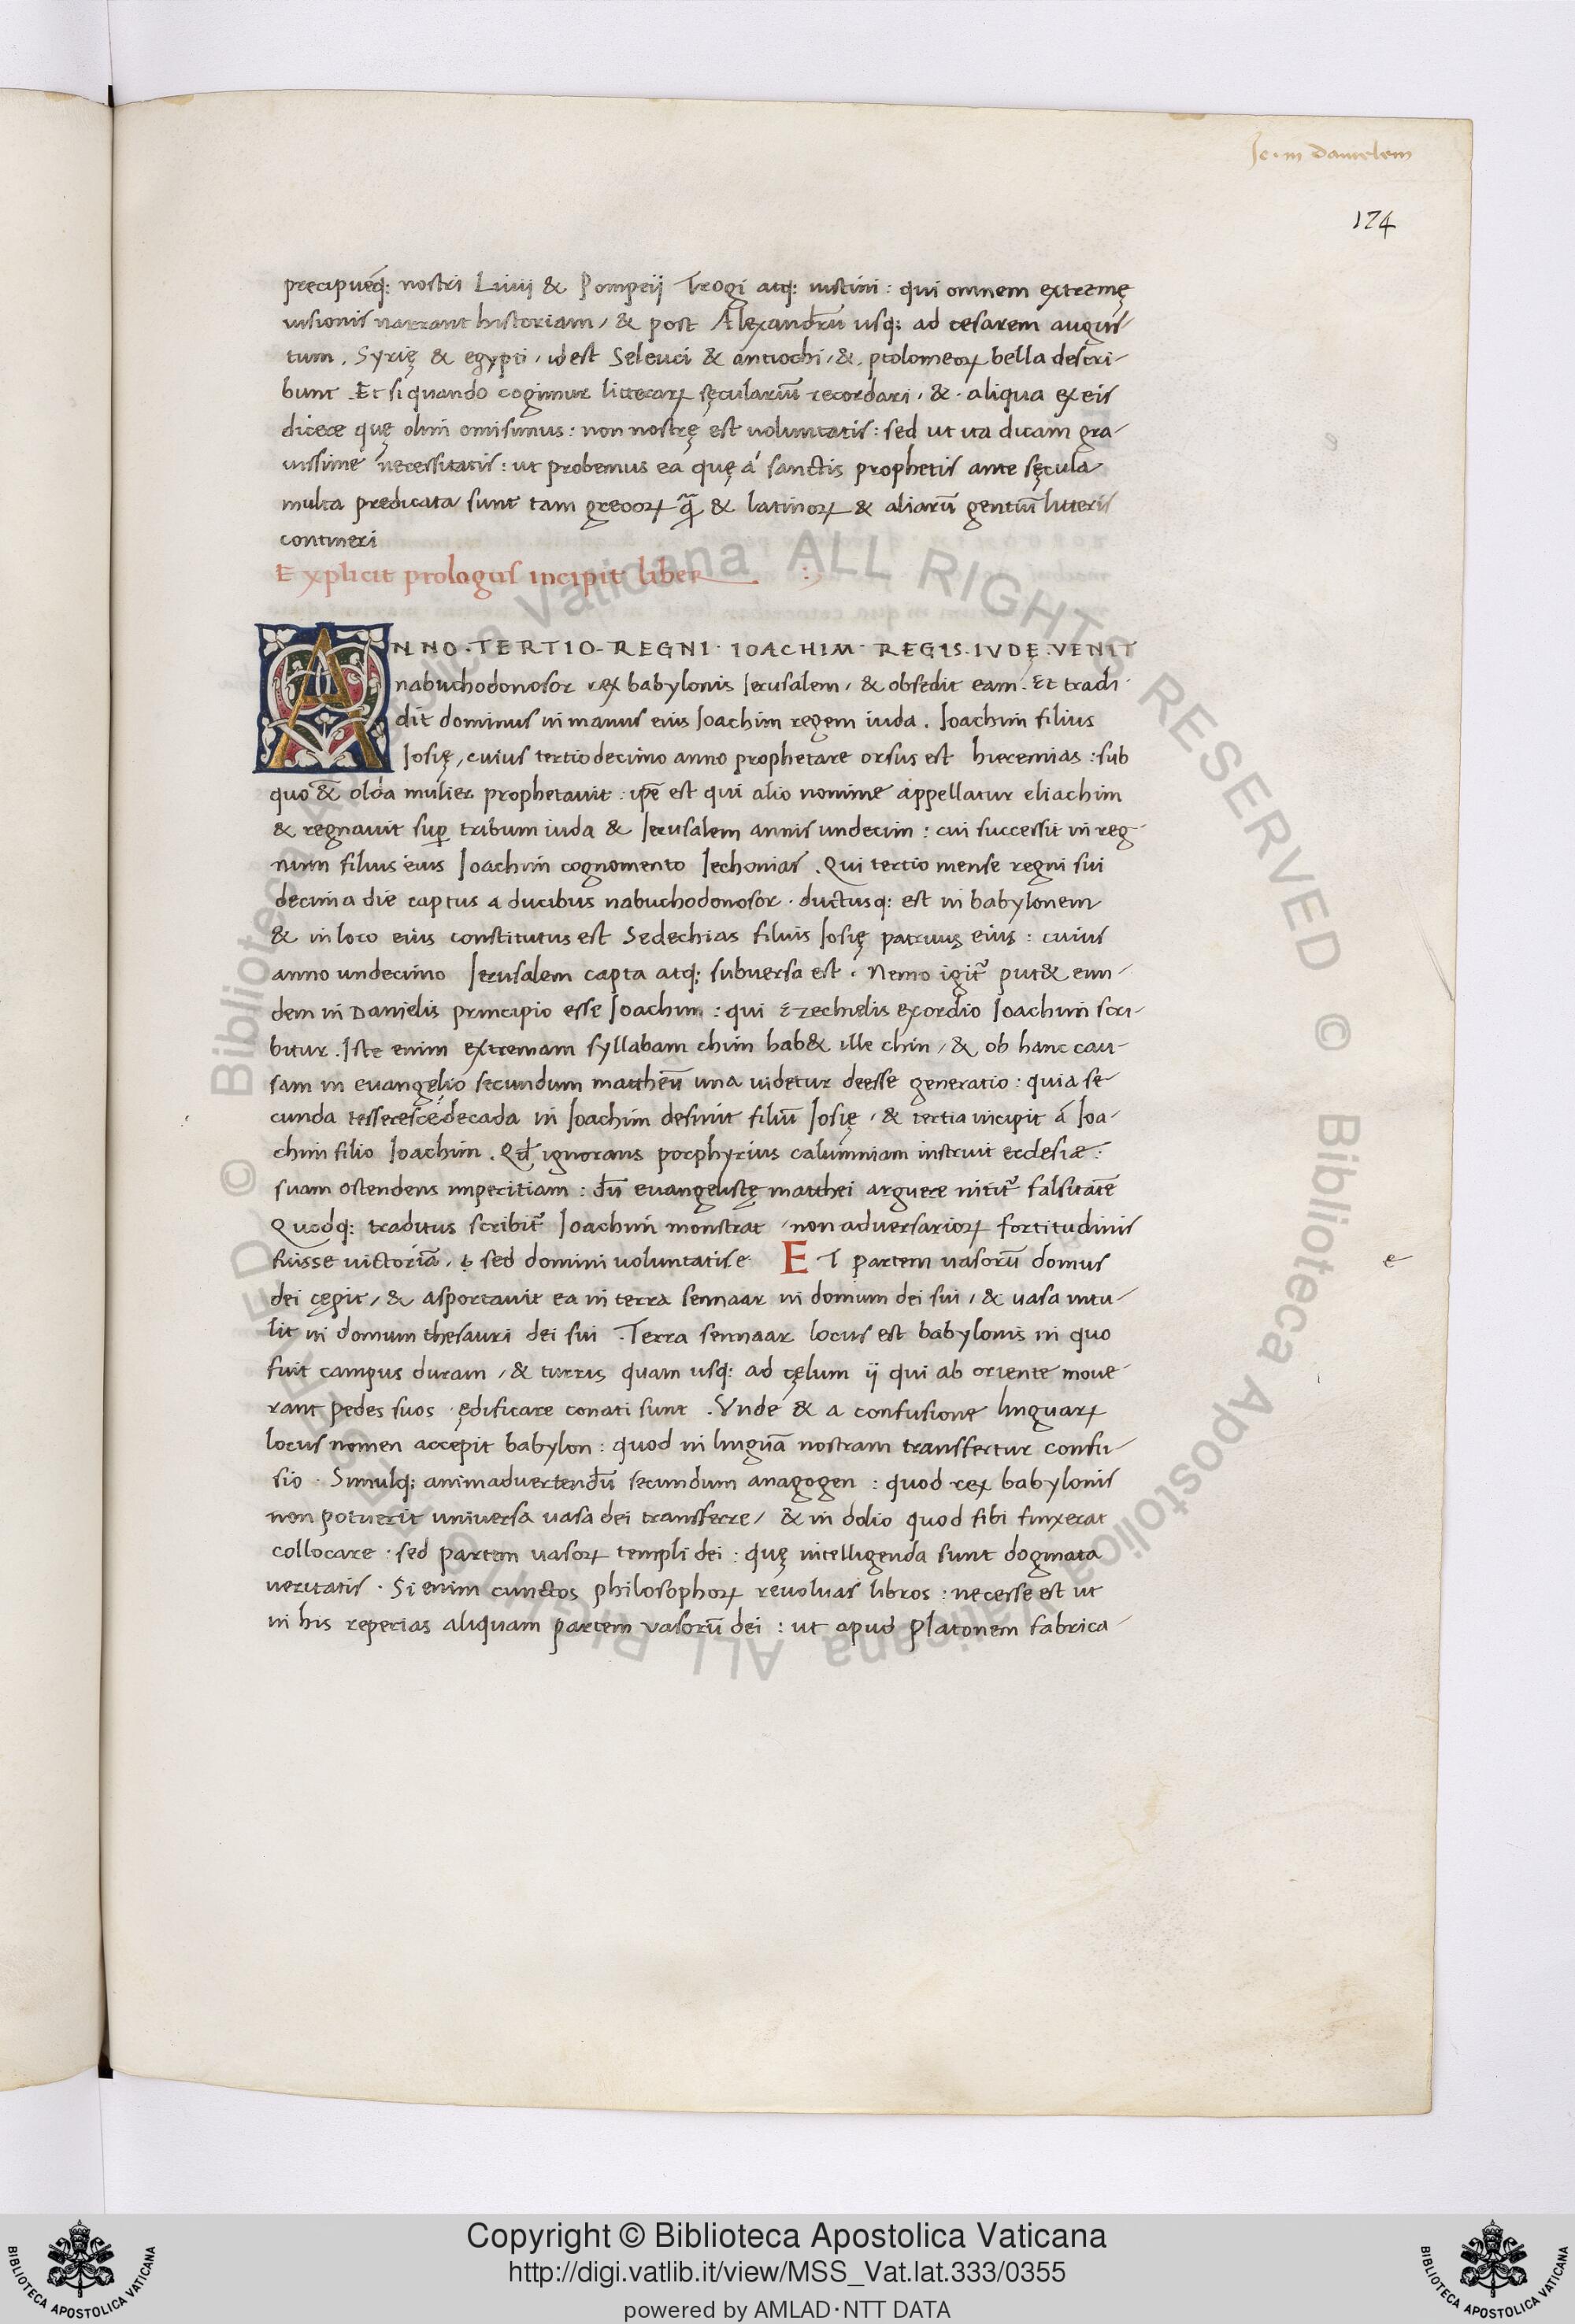 Ie · in danielem
174
precipueq́: nostri Liuij & Pompeij Trogi atq: iustini : qui omnem extremę
uisionis narrant historiam / & post Alexandrū usq; ad cesarem augus-
tum . Syrię & egypti / id est Seleuci & antiochi / & . ptolomeoꝝ bella descri-
bunt . Et si quando cogimur litteraꝝ sęculariū recordari / & · aliqua ex eis
dicere quę olim omisimus : non nostrę est uoluntatis : sed ut ita dicam gra-
uissime necessitatis : ut probemus ea quę á sanctis prophetis ante sęcula
multa predicata sunt tam grecoꝝ q̃ & latinoꝝ & aliarū gentiū litteris
contineri
Explicit prologus incipit liber
ANNO · TERTIO · REGNI · IOACHIM · REGIS · IVDĘ · VENIT
nabuchodonosor rex babylonis Ierusalem / & obsedit eam . Et tradi-
dit dominus in manus eius Ioachim regem iuda . Ioachim filius
Iosię , cuius tertiodecimo anno prophetare orsus est hieremias : sub
quo & olda mulier prophetauit : ip̄e est qui alio nomine appellatur eliachim
& regnauit suꝑ tribum iuda & Ierusalem annis undecim : cui successit in reg-
num filius eius Ioachim cognomento Iechonias . Qui tertio mense regni sui
decima die captus a ducibus nabuchodonosor · ductusq: est in babylonem
& in loco eius constitutus est Sedechias filius Iosię patruus eius : cuius
anno undecimo Ierusalem capta atq; subuersa est . Nemo igit᷑ put& eun-
dem in Danielis principio esse Ioachim : qui Ezechielis exordio Ioachim scri-
bitur . Iste enim extremam syllabam chim hab& ille chin / & ob hanc cau-
sam in euangelio secundum mattheū una uidetur deesse generatio : quia se-
cunda tesserescedecada in Ioachim desinit filiū Iosię / & tertia incipit á Ioa-
chim filio Ioachim . Qđ ignorans porphyrius calumniam instruit ecclesiæ :
suam ostendens imperitiam : dū euangelistę matthei arguere nitit᷑ falsitatē
Quodq: traditus scribit᷑ Ioachim monstrat / non aduersarioꝝ fortitudinis
fuisse uictoriā . sed domini uoluntatis e ET partem uasorū domus
dei cępit / & asportauit ea in terra sennaar in domum dei sui / & uasa intu-
lit in domum thesauri dei sui . Terra sennaar locus est babylonis in quo
fuit campus duram / & turris quam usq: ad cęlum ij qui ab oriente moue-
rant pedes suos ędificare conati sunt . Vnde & a confusione linguaꝝ
locus nomen accepit babylon : quod in linguā nostram transfertur confu-
sio · Simulq; animaduertendū secundum anagogen : quod rex babylonis
non potuerit uniuersa uasa dei transferre / & in dolio quod sibi finxerat
collocare · sed partem uasoꝝ templi dei : quę intelligenda sunt dogmata
ueritatis · Si enim cunctos philosophoꝝ reuoluas libros : necesse est ut
in his reperias aliquam partem uasorū dei : ut apud platonem fabrica-
e
© Biblioteca Apostolica Vaticana ALL RIGHTS RESERVED © Biblioteca Apostolica Vaticana ALL RIGHTS RESERVED
Copyright © Biblioteca Apostolica Vaticana
http://digi.vatlib.it/view/MSS_Vat.lat.333/0355
powered by AMLAD·NTT DATA
BIBLIOTECA APOSTOLICA VATICANA
BIBLIOTECA APOSTOLICA VATICANA